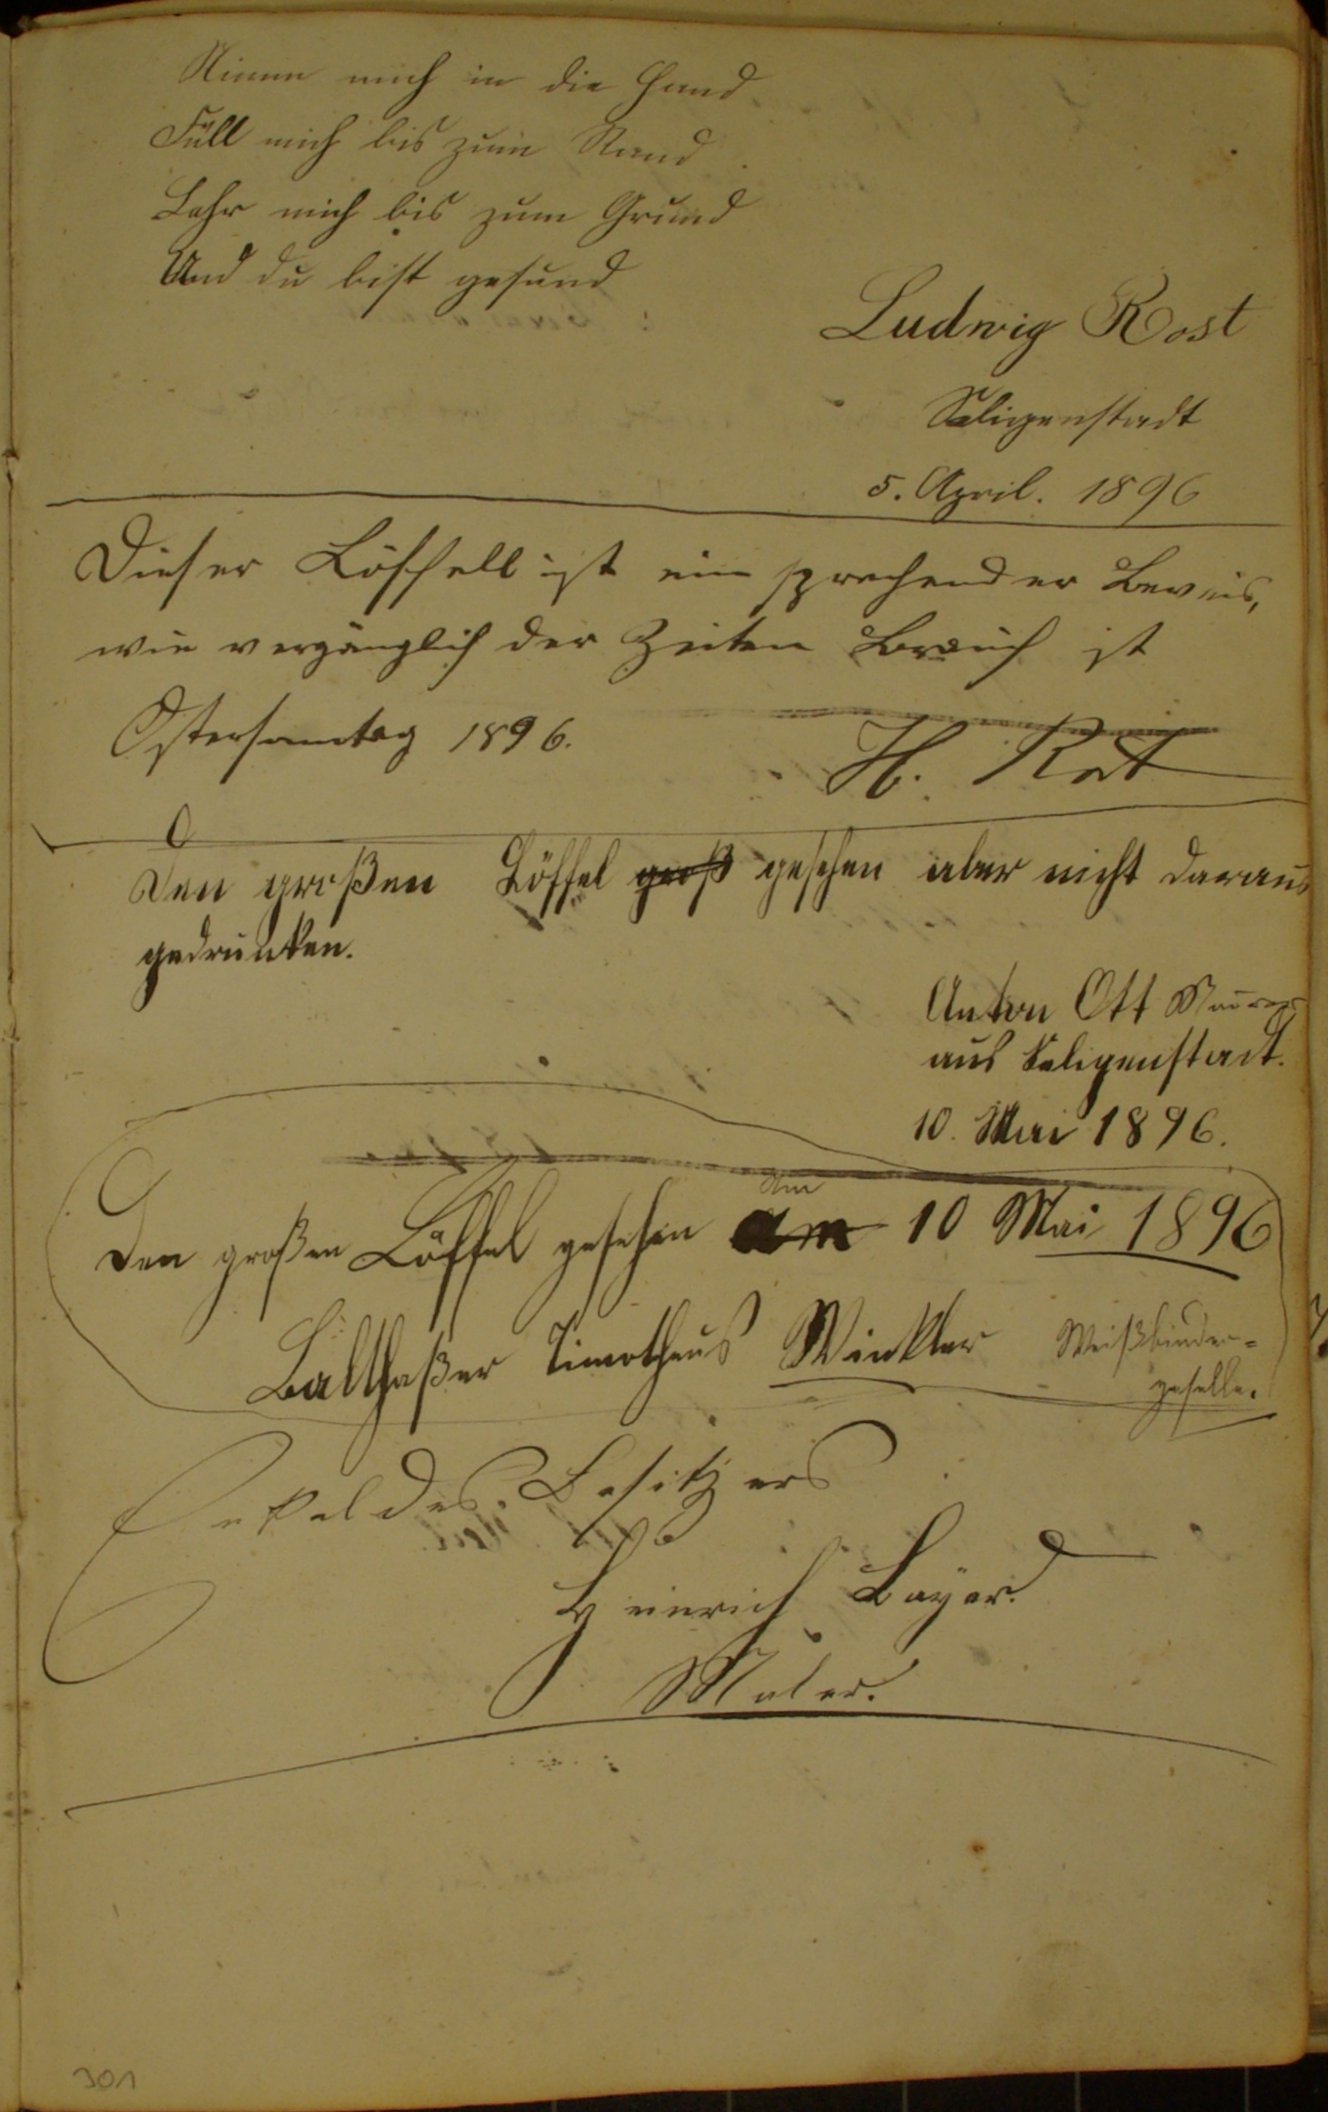 Nimm mich in die Hand
Füll mich bis zum Rand
Lehr mich bis zum Grund
Und du bist gesund
Ludwig Rost
Seligenstadt
5. April. 1896
Dieser Löffell ist ein sprechender Beweis,
wie vergänglich der Zeiten Brauch ist
Ostersonntag 1896.
H. Rost
Den großen Löffel groß gesehen aber nicht daraus
gedrunken.
Anton Ott Maurer
aus Seligenstadt.
10. Mai 1896.
Den großen Löffel gesehen am 10 Mai 1896
Balthaßer Timotheus Winkler Weißbinder-
geselle.
Enkel des Besitzers
Heinrich Bayer.
Maler.
301